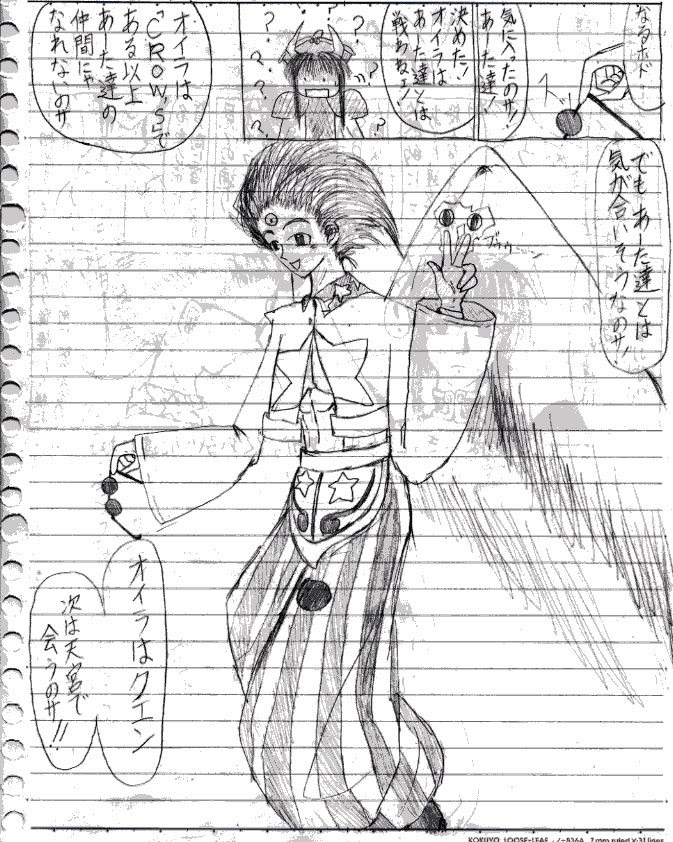 なるホド
気に入ったのサ!!
あーた達!
決めた!
オイラは
あーた達とは
戦わねェ!
?
?
?
?
?
?
?
?
?
オイラは
「CROW'S」で
ある以上
あーた達の
仲間にゃ
なれないのサ
でもあーた達とは
気が合いそうなのサ!
ブゥゥ
オイラはクエン
次は天宮で
会うのサ!!
KOKUYO LOOSE-LEAF ノ-836A 7 mm ruled×31 lines